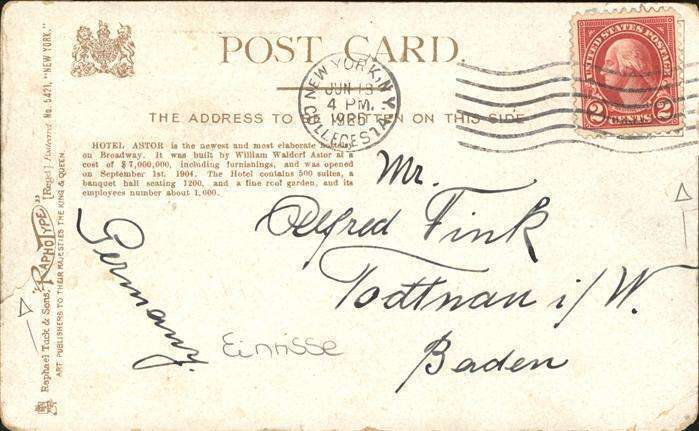 POST CARD
THE ADDRESS TO BE WRITTEN ON THIS SIDE
NEW YORK, N.Y.
JUN 13
4 PM.
COLLEGE STA.
UNITED STATES POSTAGE
2 CENTS 2
HOTEL ASTOR is the newest and most elaborate hostelry
on Broadway. It was built by William Waldorf Astor at a
cost of $7,000,000, including furnishings, and was opened
on September 1st. 1904. The Hotel contains 500 suites, a
banquet hall seating 1200, and a fine roof garden, and its
employees number about 1,000.
Mr.
Alfred Fink
Todtnau i/W.
Baden
Germany.
Einrisse
Raphael Tuck & Sons' "RAPHOTYPE" [Regd.] Postcard No. 5421, "NEW YORK."
ART PUBLISHERS TO THEIR MAJESTIES THE KING & QUEEN.